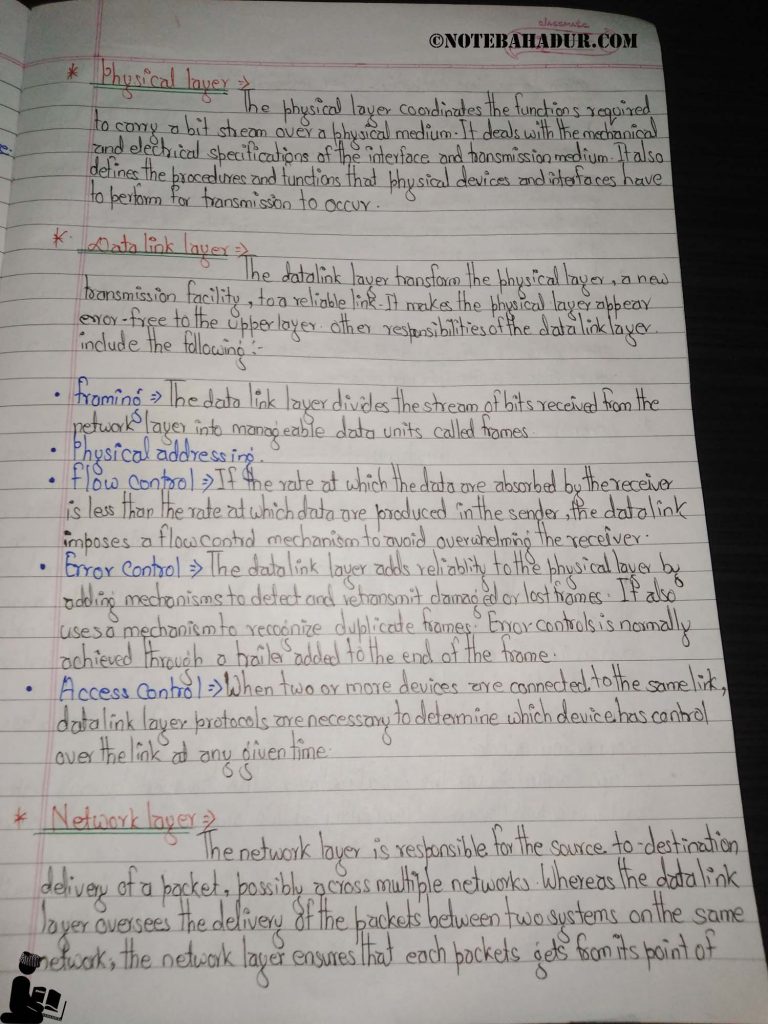 classmate
©NOTEBAHADUR.COM
* Physical layer ⇒
The physical layer coordinates the functions required
to carry a bit stream over a physical medium. It deals with the mechanical
and electrical specifications of the interface and transmission medium. It also
defines the procedures and functions that physical devices and interfaces have
to perform for transmission to occur.
* Data link layer ⇒
The datalink layer transform the physical layer, a new
transmission facility, to a reliable link. It makes the physical layer appear
error-free to the upper layer. other responsibilities of the data link layer.
include the following :-
• framing ⇒ The data link layer divides the stream of bits received from the
network layer into manageable data units called frames.
• Physical addressing.
• flow control ⇒ If the rate at which the data are absorbed by the receiver
is less than the rate at which data are produced in the sender, the data link
imposes a flow control mechanism to avoid overwhelming the receiver.
• Error Control ⇒ The data link layer adds reliablity to the physical layer by
adding mechanisms to detect and retransmit damaged or lost frames. It also
uses a mechanism to recognize duplicate frames. Error controls is normally
achieved through a trailer added to the end of the frame.
• Access Control ⇒ When two or more devices are connected to the same link,
data link layer protocols are necessary to determine which device has control
over the link at any given time.
* Network layer ⇒
The network layer is responsible for the source-to-destination
delivery of a packet, possibly across multiple networks. Whereas the data link
layer oversees the delivery of the packets between two systems on the same
network, the network layer ensures that each packets gets from its point of